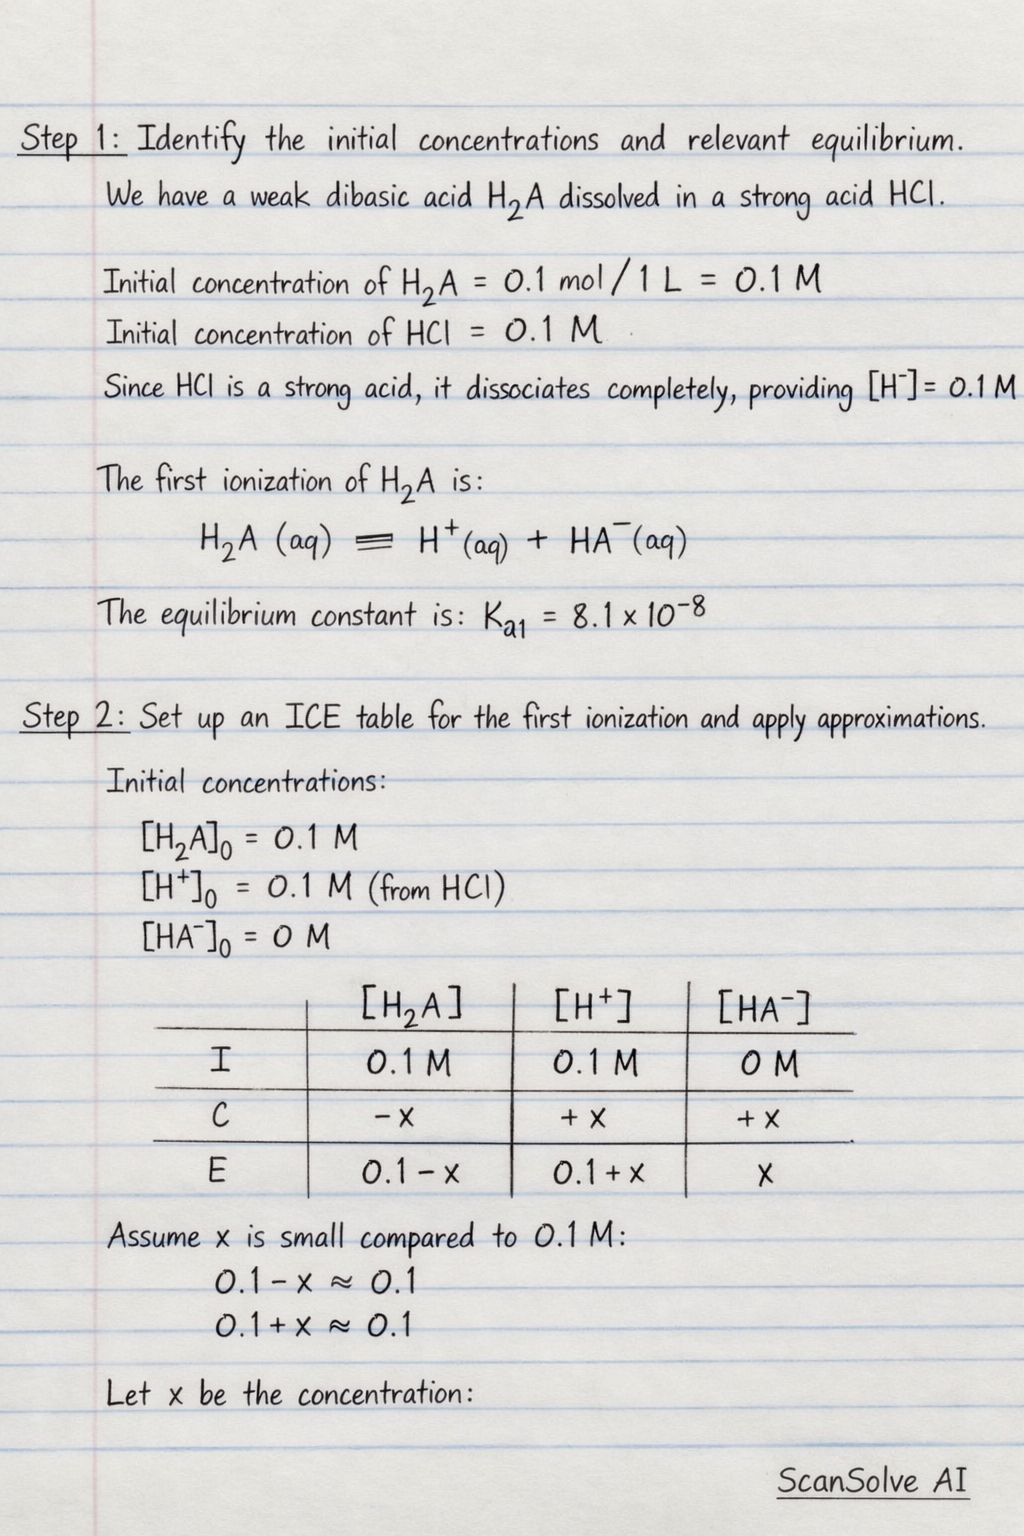 Step 1: Identify the initial concentrations and relevant equilibrium.
We have a weak dibasic acid H₂A dissolved in a strong acid HCl.
Initial concentration of H₂A = 0.1 mol / 1 L = 0.1 M
Initial concentration of HCl = 0.1 M
Since HCl is a strong acid, it dissociates completely, providing [H⁻] = 0.1 M
The first ionization of H₂A is:
H₂A (aq) ≡ H⁺(aq) + HA⁻(aq)
The equilibrium constant is: Kₐ₁ = 8.1 x 10⁻⁸
Step 2: Set up an ICE table for the first ionization and apply approximations.
Initial concentrations:
[H₂A]₀ = 0.1 M
[H⁺]₀ = 0.1 M (from HCl)
[HA⁻]₀ = 0 M
[H₂A] [H⁺] [HA⁻]
I 0.1 M 0.1 M 0 M
C -x +x +x
E 0.1-x 0.1+x x
Assume x is small compared to 0.1 M:
0.1-x ≈ 0.1
0.1+x ≈ 0.1
Let x be the concentration:
ScanSolve AI